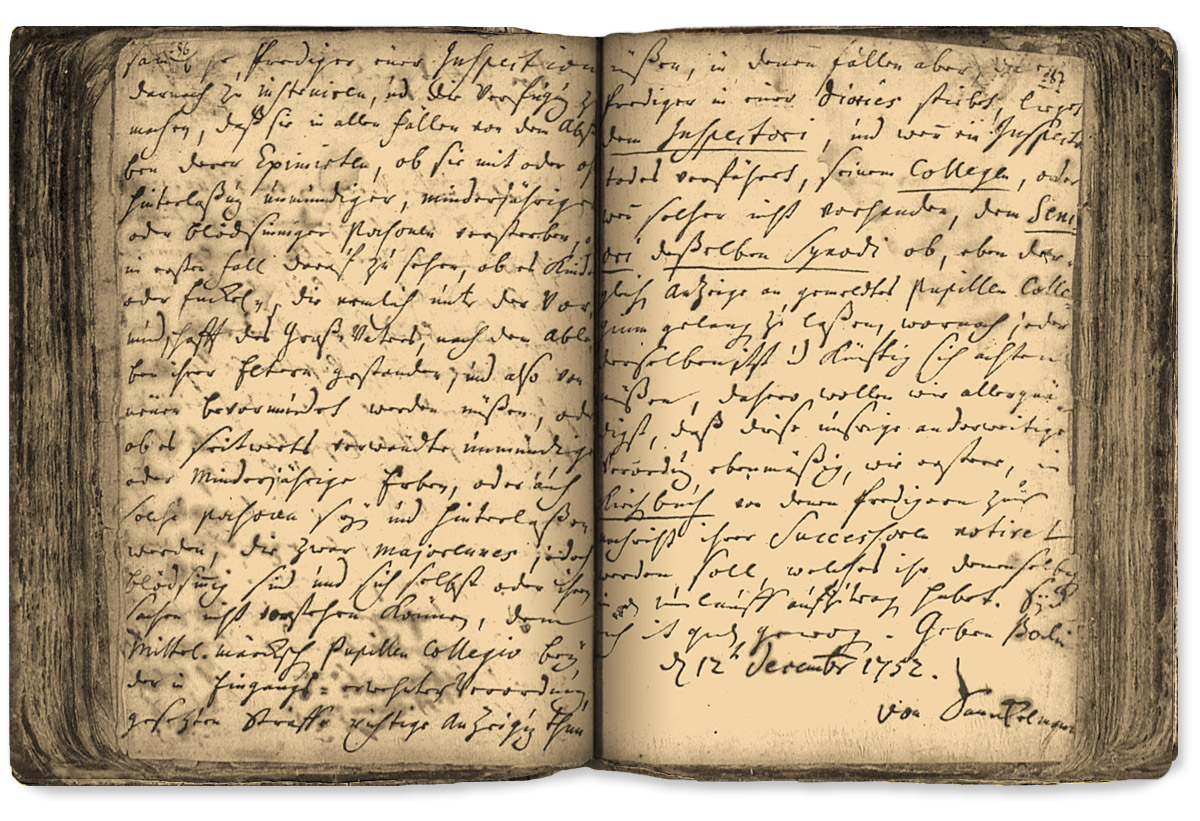 286
Prediger einer Inspection
darnach zu instruiren, und die Verfügung zu
machen, daß sie in allen fällen von dem Abst
ben derer Eximirten, ob sie mit oder oh
hinterlaßung unmündiger, minderjähriger
oder blödsinniger Persohnen versterben,
in ersten fall darauf zu sehen, ob es Kind
oder Enckel, die nemlich unter der Vor
mundschafft des Groß-Vaters, nach dem Able
ben ihrer Eltern gestanden, und also von
neuen bevormundet werden müßen, oder
ob es seitwerts verwandte unmündige
oder Minderjährige Erben, oder auch
solche Persohnen seyn und hinterlaßen
werden, die zwar majorennes, jedoch
blödsinnig sind und sich selbst oder ihren
sachen nicht vorstehen können, dem
Mittel-märckisch Pupillen Collegio bey
der in Eingangs-erwehnter Verordnung
gesetzten Straffe richtige Anzeigung thun
287
müßen, in denen fällen aber,
Prediger in einer Dioeces stirbet, lieget
dem Inspectori, und wenn ein Inspector
todes verfähret, seinem Collegen, oder
wenn solcher nicht vorhanden, dem Seni
ori deßelben Synodi ob, eben der-
gleich Anzeige an gemeldtes Pupillen Colle-
gium gelangen zu laßen, wornach jeder
derselben itzt und künftig sich achten
müßen, dahero wollen wir allergnä-
digst, daß diese unsrige anderweitige
Verordnung ebenmäßig, wie erstere, in
Kirchbuch von denen Predigern zur
nachricht ihrer Successoren notiret
werden soll, welches ihr denenselben
umlauff aufzugeben habet. Sind
euch mit gnaden gewogen. Geben Berlin
den 12t December 1752.
von Danckelmann